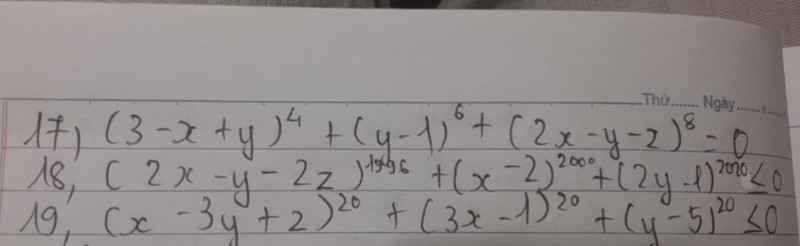 Thứ....... Ngày.......
17) (3-x+y)⁴ + (y-1)⁶ + (2x-y-z)⁸ = 0
18, (2x-y-2z)¹⁹⁹⁶ + (x-2)²⁰⁰⁰ + (2y-1)²⁰²⁰ ≤ 0
19, (x-3y+z)²⁰ + (3x-1)²⁰ + (y-5)²⁰ ≤ 0